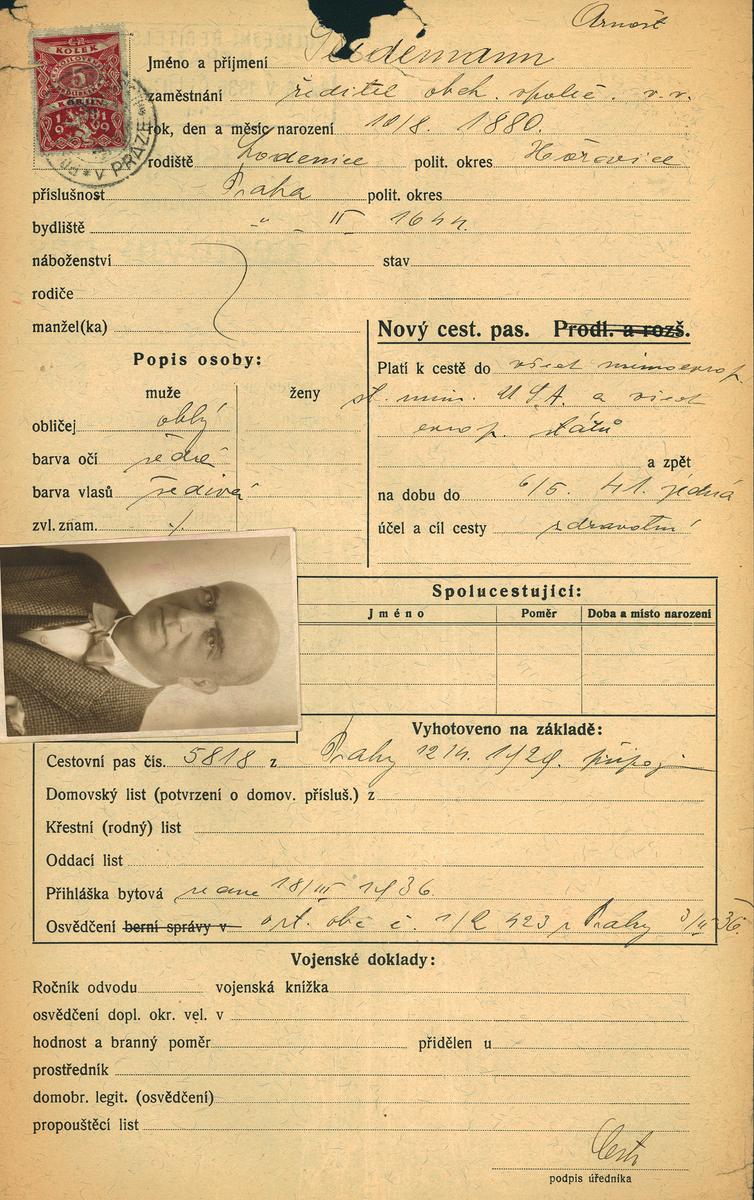 Arnošt
KOLEK
5
1919
V PRAZE
Jméno a příjmení
zaměstnání ředitel obch. společ. v. v.
rok, den a měsíc narození 10/8. 1880.
rodiště Lodenice polit. okres Hořovice
příslušnost Praha polit. okres
bydliště " - II 1644.
náboženství stav
rodiče
manžel(ka)
Nový cest. pas. Prodl. a rozš.
Popis osoby:
muže ženy
obličej oblý
barva očí šedé
barva vlasů šedivé
zvl. znam. ./.
Platí k cestě do všech mimoevrop.
st. mim. USA. a všech
evrop. států
a zpět
na dobu do 6/5. 41. jedná
účel a cíl cesty zdravotní
Spolucestující:
Jméno Poměr Doba a místo narození
Vyhotoveno na základě:
Cestovní pas čís. 5818 z Prahy 1929.
Domovský list (potvrzení o domov. přísluš.) z
Křestní (rodný) list
Oddací list
Přihláška bytová ze dne 18/III 1936.
Osvědčení berní správy v obč. č. Prahy
Vojenské doklady:
Ročník odvodu vojenská knížka
osvědčení dopl. okr. vel. v
hodnost a branný poměr přidělen u
prostředník
domobr. legit. (osvědčení)
propouštěcí list
podpis úředníka